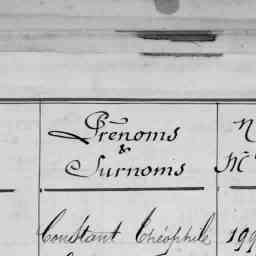 Prénoms
&
Surnoms
N
Constant Théophile 199